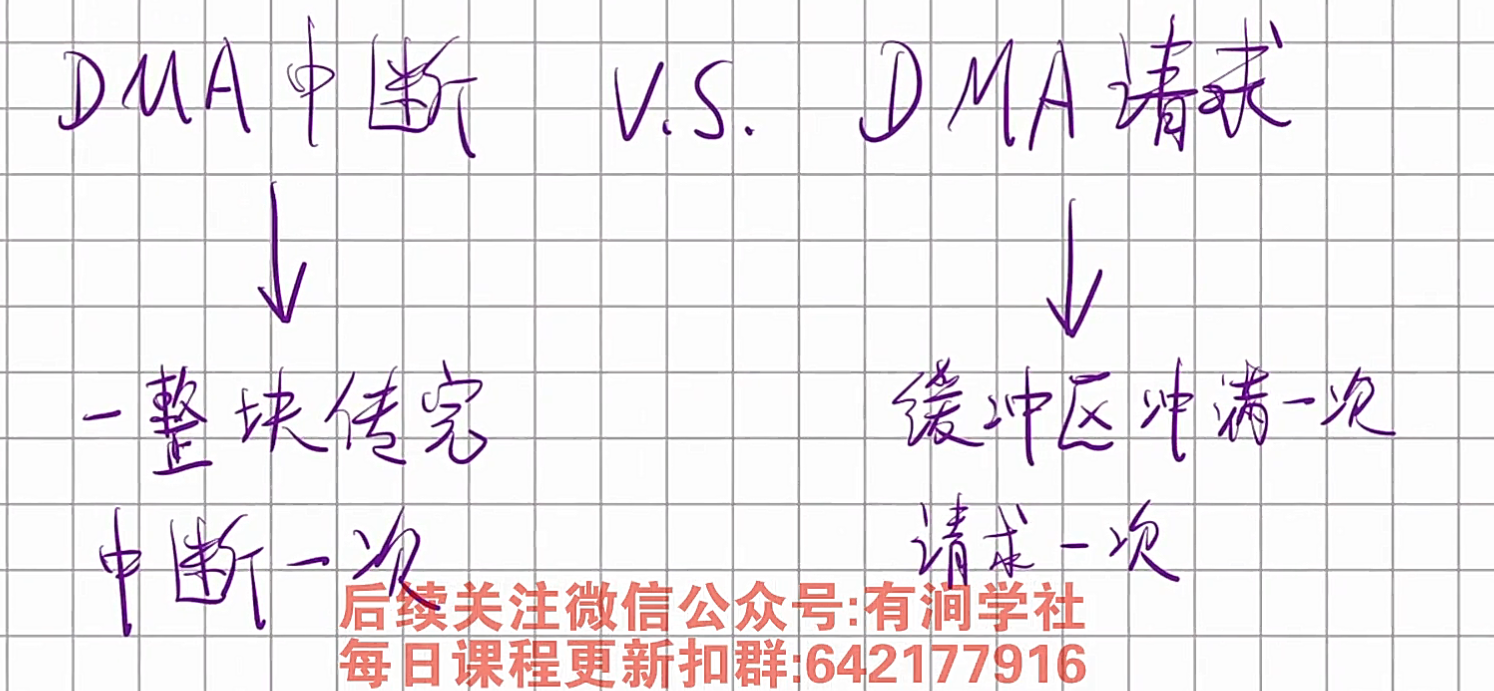 DMA中断 V.S. DMA请求
一整块传完 缓冲区冲满一次
中断一次 请求一次
后续关注微信公众号:有涧学社
每日课程更新扣群:642177916